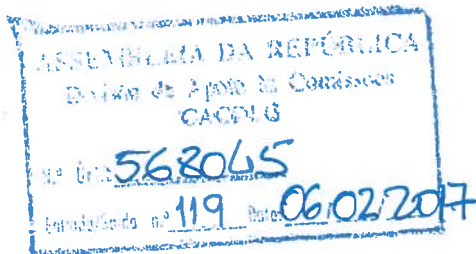 ASSEMBLEIA DA REPÚBLICA
Divisão de Apoio às Comissões
CACDLG
N.º Único 568045
Entrada/Saída n.º 119 Data 06/02/2017